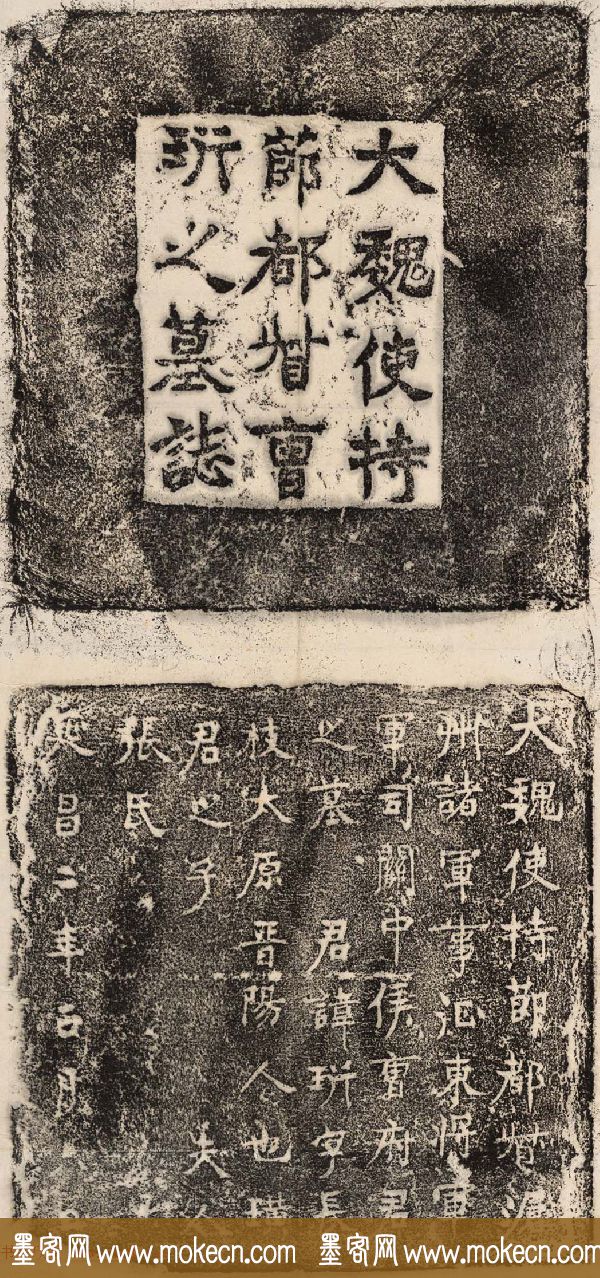 大魏使持
節都督曹
之墓誌
大魏使持節都督
州諸軍事征東將軍
軍司關中侯曹府君
之墓 君諱 字長
枝大原晋陽人也
君之子 夫
張氏
延昌二年 月
墨客网 www.mokecn.com 墨客网 www.mokecn.com